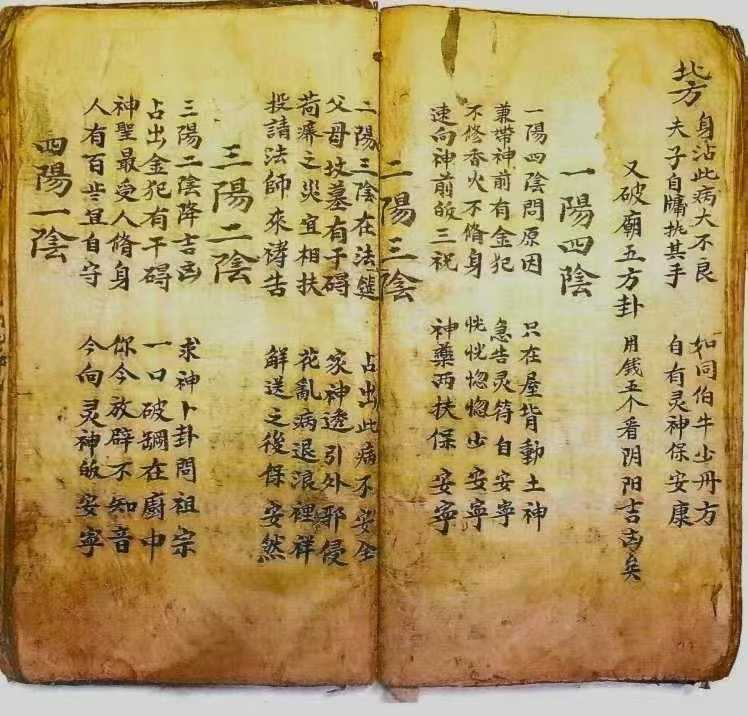 北方
身沾此病大不良 如同伯牛少丹方
夫子自牗执其手 自有灵神保安康
又破廟五方卦 用钱五个看阴阳吉凶矣
一陽四陰
一陽四陰問原因 只在屋背動土神
兼帶神前有金犯 急告灵符自安寧
不修香火不脩身 恍恍惚惚少安寧
速向神前的三祝 神藥两扶保安寧
二陽三陰
二陽三陰在法筵 占出此病不安全
父母坟墓有于碍 家神透引外邪侵
荷瀳之災宜相扶 花亂病退浪裡祥
投請法師來禱告 解送之後保安然
三陽二陰
三陽二陰降吉凶 求神卜卦問祖宗
占出金犯有干碍 一口破鍋在廚中
神聖最受人脩身 你今放辟不知音
人有百些且自守 今向灵神的安寧
四陽一陰